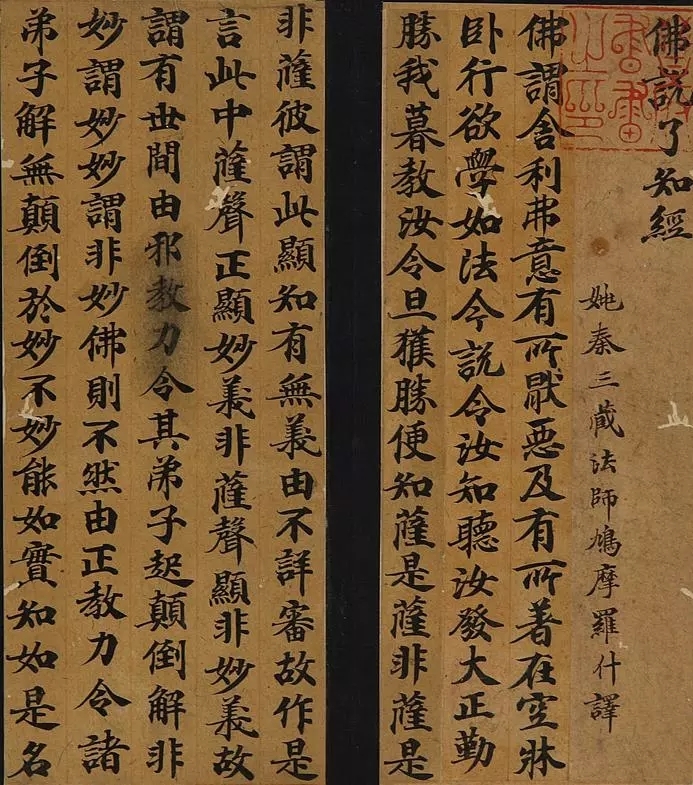 佛說了知經
姚秦三藏法師鳩摩羅什譯
佛謂舍利弗意有所厭惡及有所著在空牀
卧行欲學如法今說令汝知聽汝發大正勤
勝我暮教汝令旦獲勝便知薩是薩非薩是
非薩彼謂此顯知有無義由不詳審故作是
言此中薩聲正顯妙義非薩聲顯非妙義故
謂有世間由邪教力令其弟子起顛倒解非
妙謂妙妙謂非妙佛則不然由正教力令諸
弟子解無顛倒於妙不妙能如實知如是名